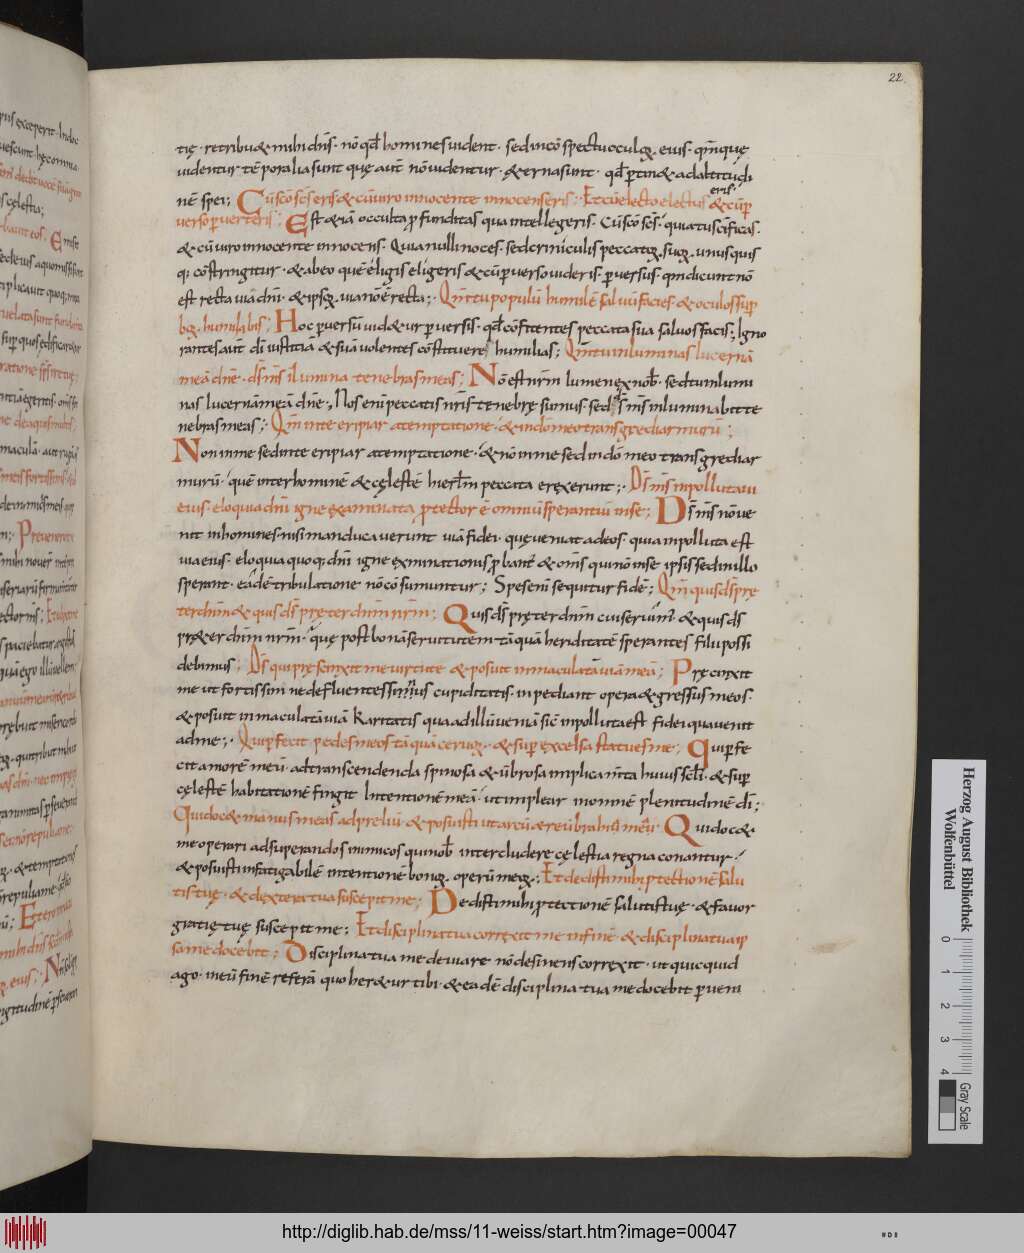 22
tię · retribu& mihi dn̄s · nō qđ homines vident · sed in cōspectu oculoꝝ eius · qm̄ quę
videntur tēporalia sunt quę aut̄ nō videntur · &erna sunt · qđ ptin& ad altitudi
nē spei; Cū sc̄o sc̄s eris & cū viro innocente innocens eris; Et cū electo electus eris & cū p
verso pverteris; Est &iā occulta pfunditas qua intellegeris · Cū sc̄o sc̄s · quia tu sc̄ificas ·
& cū viro innocente innocens · Quia nulli noces · sed criniculis peccatoꝝ suoꝝ · unus quis
q; cōstringitur · & ab eo quē eligis eligeris & cū pverso videris pversus · qm̄ dicunt nō
est recta via dn̄i · & ipsoꝝ via nō ē recta; Qm̄ tu populū humilē saluū facies & oculos sup
boꝝ humiliabis; Hoc pversū vid&ur pversis · qđ cōfitentes peccata sua salvos facis; Igno
rantes aut̄ dī iustitiā & suā volentes cōstituere humilias; Qm̄ tu inluminas lucernā
meā dn̄e · ds̄ ms̄ illumina tenebras meas; Nō est nr̄m lumen ex nob̄ · sed tu inlumi
nas lucernā meā dn̄e; Nos eni peccatis nr̄is tenebrę sumus · sed ds̄ ms̄ inluminabit te
nebras meas; Qm̄ in te eripiar a temptatione · & in dō meo transgrediar murū;
Non in me sed in te eripiar a temptatione · & nō in me sed in dō meo transgrediar
murū · quē inter hominē & cęlestē hierl̄m peccata erexerunt; Ds̄ ms̄ inpolluta via
eius · eloquia dn̄i igne examinata ptector ē omniū sperantiū in se; Ds̄ ms̄ nō ve
nit in homines · nisi manducaverunt viā fidei · quę veniat ad eos · quia inpolluta est
via eius · eloquia quoq; dn̄i igne exminationis pbant̄ & om̄s qui nō in se ipsis sed in illo
sperant · eadē tribulatione nō cōsumuntur; Spes eni sequitur fidē; Qm̄ quis ds̄ prę
ter dn̄m & quis ds̄ pręter dn̄m nr̄m; Quis ds̄ pręter dn̄m cui servim̄ & quis ds̄
pręter dn̄m nr̄m · quę post bonā servitutem tāquā heriditatē sperantes filii possi
debimus; Ds̄ qui pręcinxit me virtute & posuit inmaculatā viā meā; Pręcinxit
me ut fortis sim ne defluentes sinus cupiditatis · inpediant opera & gressus meos ·
& posuit inmaculatā viā karitatis qua ad illū veniā sic̄ inpolluta est fidei qua venit
ad me; Qui pfecit pedes meos tāquā cervoꝝ · & sup excelsa statues me; Qui pfe
cit amorē meū · ad transcendenda spinosa & ūbrosa implicamta huius scl̄i · & sup
cęlestē habitationē fingit intentionē meā · ut implear in omnē plenitudinē dī;
Qui doc& manus meas ad preliū · & posuisti ut arcū aereū brahia mea; Qui doc&
me operari ad superandos inimicos qui nob̄ intercludere cęlestia regna conantur ·
& posuisti infatigabilē intentionē bonoꝝ operū meoꝝ; Et dedisti mihi ptectionē salu
tis tuę · & dextera tua suscepit me; Dedisti mihi ptectionē salutis tuę · & favor
gratię tuę suscepit me; Et disciplina tua correxit me in finē & disciplina tua ip
sa me docebit; Disciplina tua me deviare nō desinens correxit · ut quicquid
ago · in eū finē referā quo her&ur tibi · & eadē disciplina tua me docebit pveni
Herzog August Bibliothek
Wolfenbüttel
0 1 2 3 4
Gray Scale
http://diglib.hab.de/mss/11-weiss/start.htm?image=00047